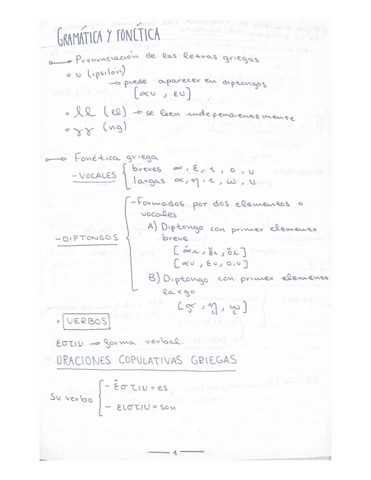 GRAMÁTICA Y FONÉTICA
Pronunciación de las letras griegas
υ (ipsilón)
→ puede aparecer en diptongos
[αυ, ευ]
ll (el) → se leen independientemente
γγ (ng)
Fonética griega
- VOCALES { breves α, ε, ι, ο, υ
largas α, η, ι, ω, υ
- Formados por dos elementos o
vocales
- DIPTONGOS
A) Diptongo con primer elemento
breve
[ᾰι, ε̆ι, ο̆ι]
[αυ, ευ, ου]
B) Diptongo con primer elemento
largo
[ᾳ, ῃ, ῳ]
VERBOS
εστιν → forma verbal
ORACIONES COPULATIVAS GRIEGAS
Su verbo { - ἐστιν = es
- εισιν = son
1